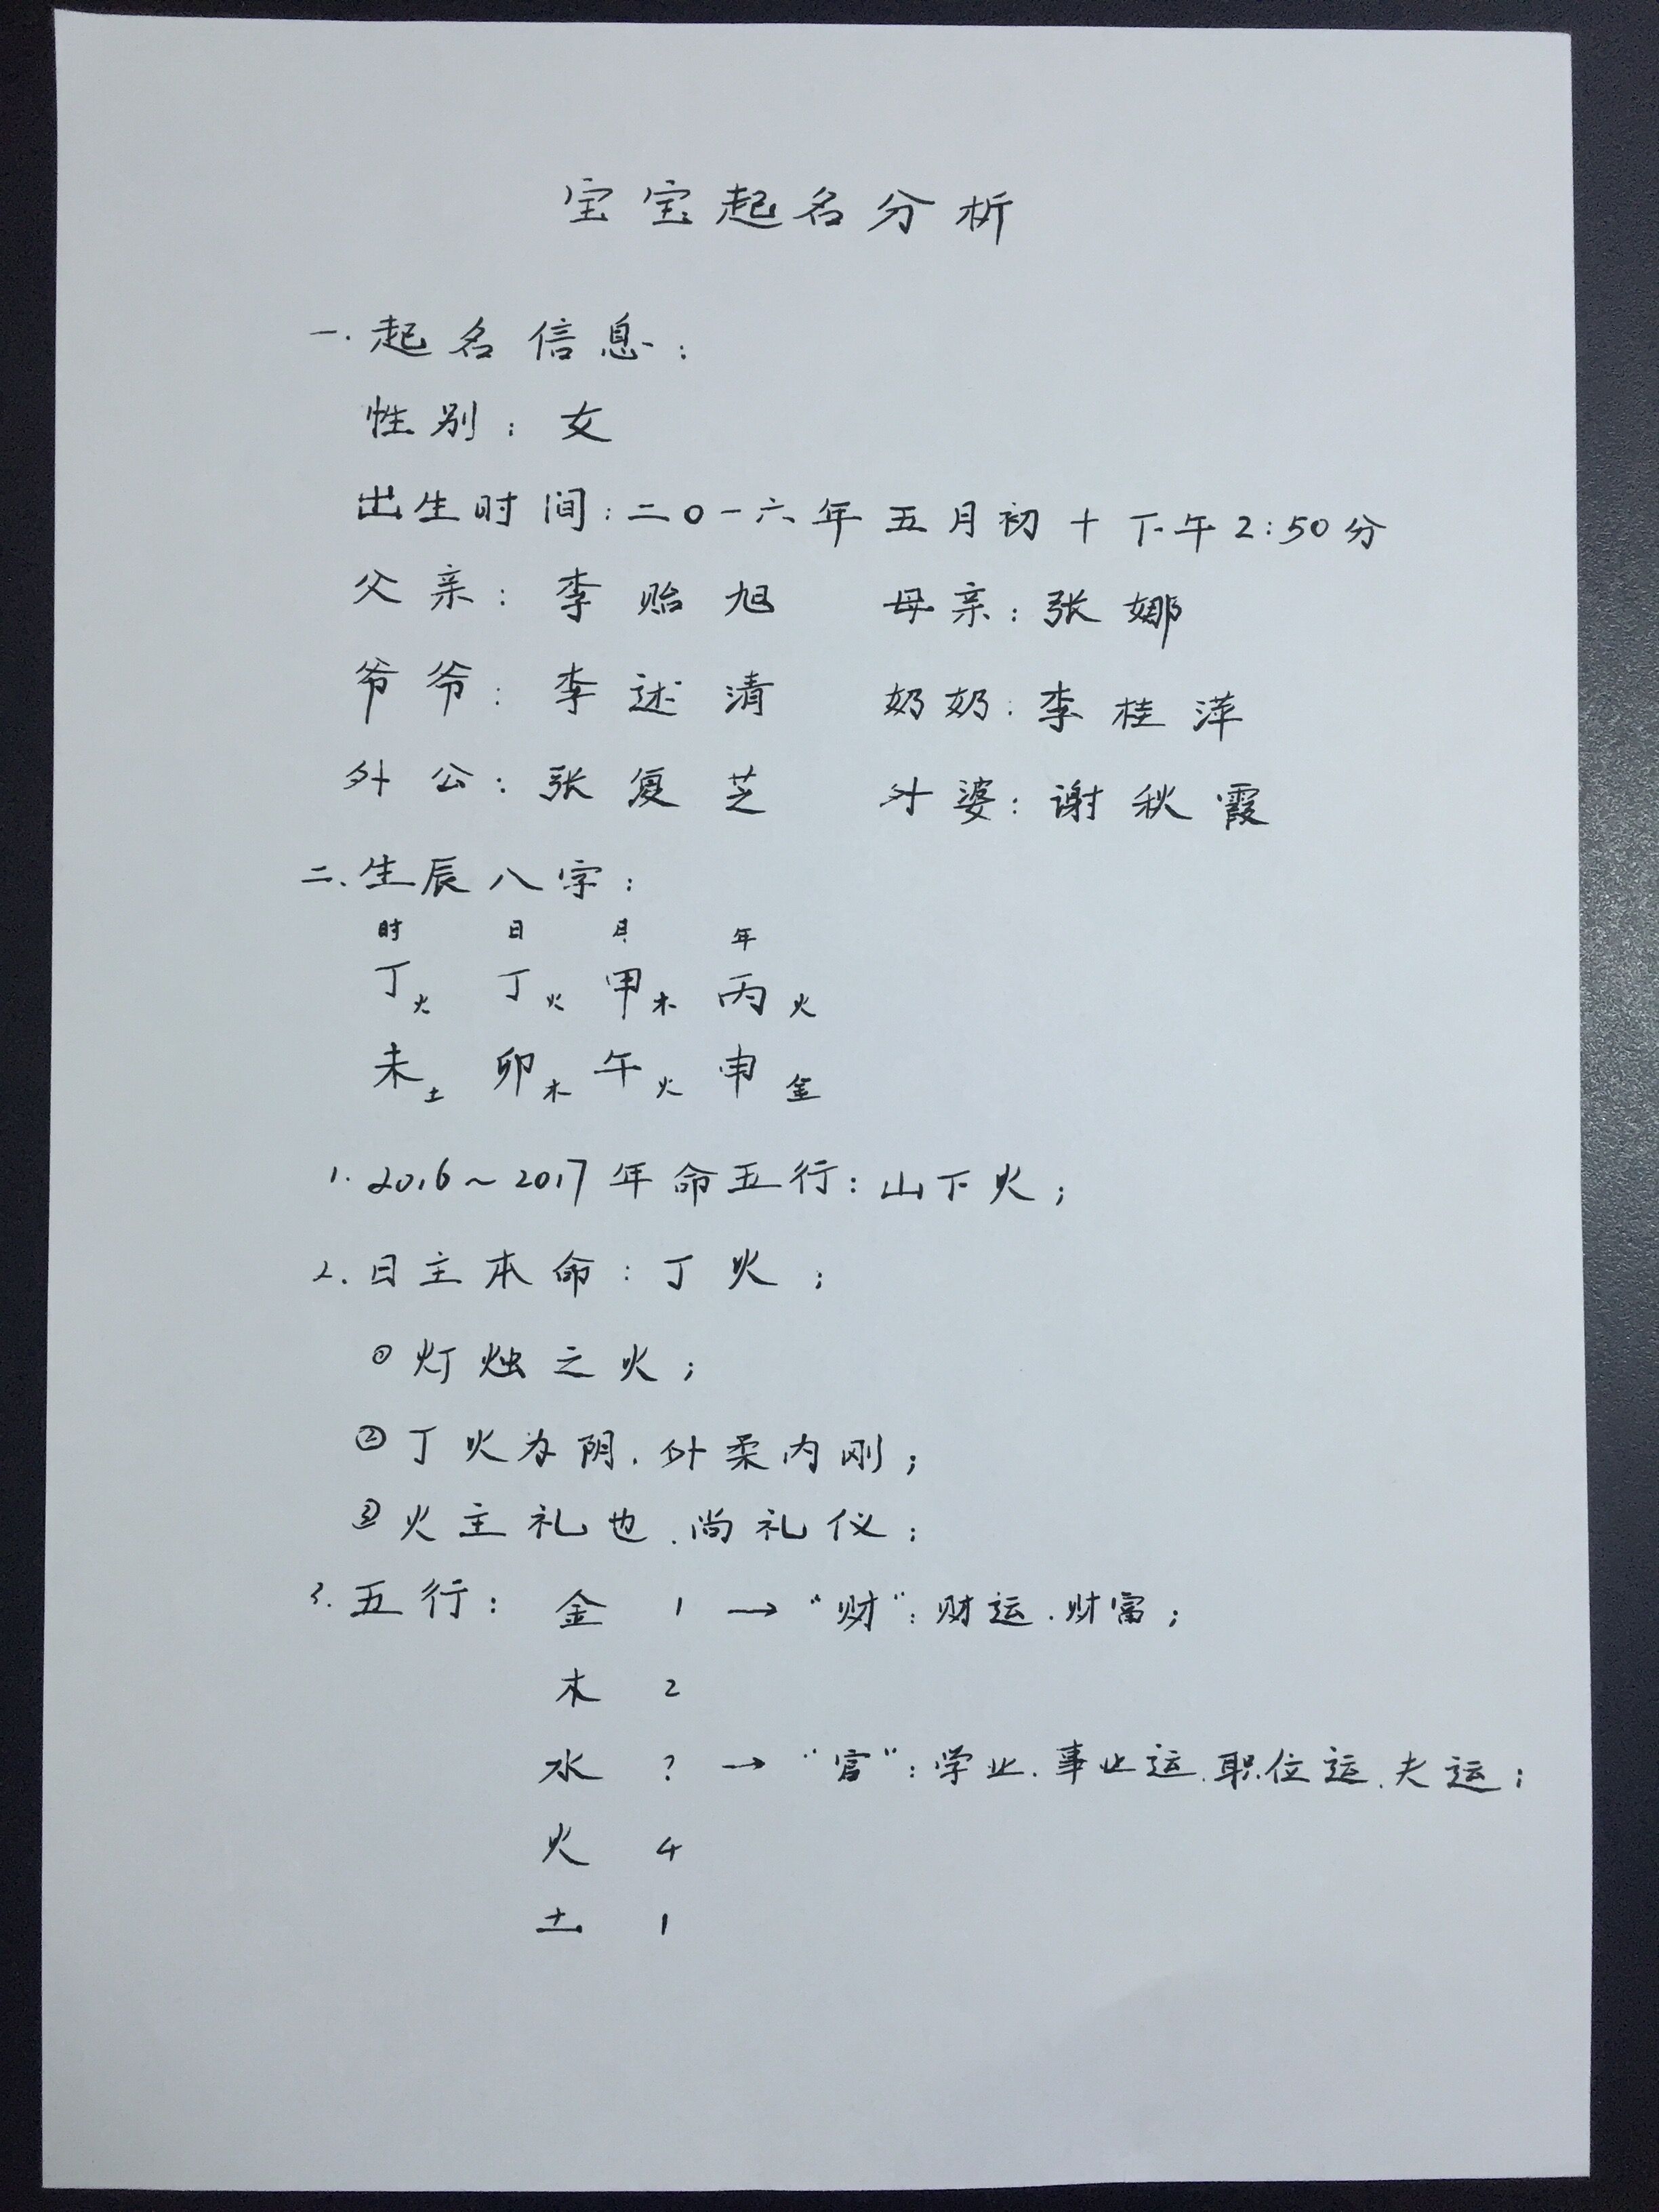 宝宝起名分析
一.起名信息:
性别:女
出生时间:二0一六年五月初十下午2:50分
父亲:李贻旭 母亲:张娜
爷爷:李述清 奶奶:李桂萍
外公:张复芝 外婆:谢秋霞
二、生辰八字:
时 日 月 年
丁火 丁火 甲木 丙火
未土 卯木 午火 申金
1.2016~2017年命五行:山下火;
2.日主本命:丁火;
①灯烛之火;
②丁火为阴.外柔内刚;
③火主礼也.尚礼仪;
3.五行: 金 1 → "财":财运.财富;
木 2
水 ? → "官":学业.事业运.职位运.夫运;
火 4
土 1